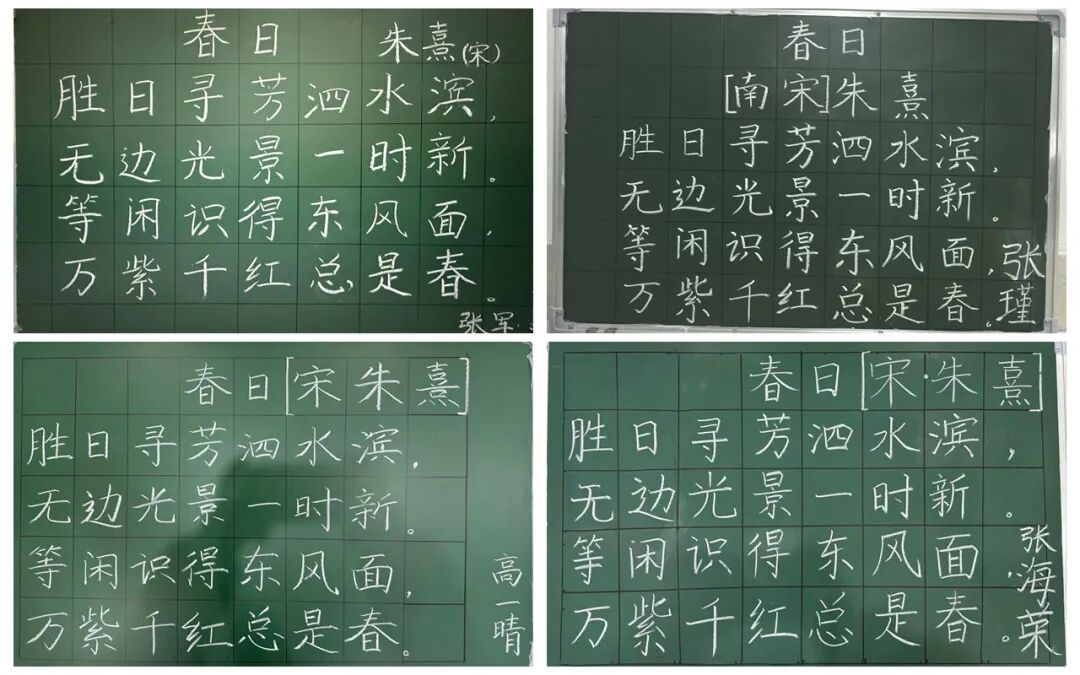 春日 朱熹(宋)
胜日寻芳泗水滨，
无边光景一时新。
等闲识得东风面，
万紫千红总是春。
张军
春日
[南宋]朱熹
胜日寻芳泗水滨，
无边光景一时新。
等闲识得东风面，
万紫千红总是春。
张瑾
春日[宋朱熹]
胜日寻芳泗水滨，
无边光景一时新。
等闲识得东风面，
万紫千红总是春。
高一晴
春日[宋·朱熹]
胜日寻芳泗水滨，
无边光景一时新。
等闲识得东风面
万紫千红总是春。
张海荣